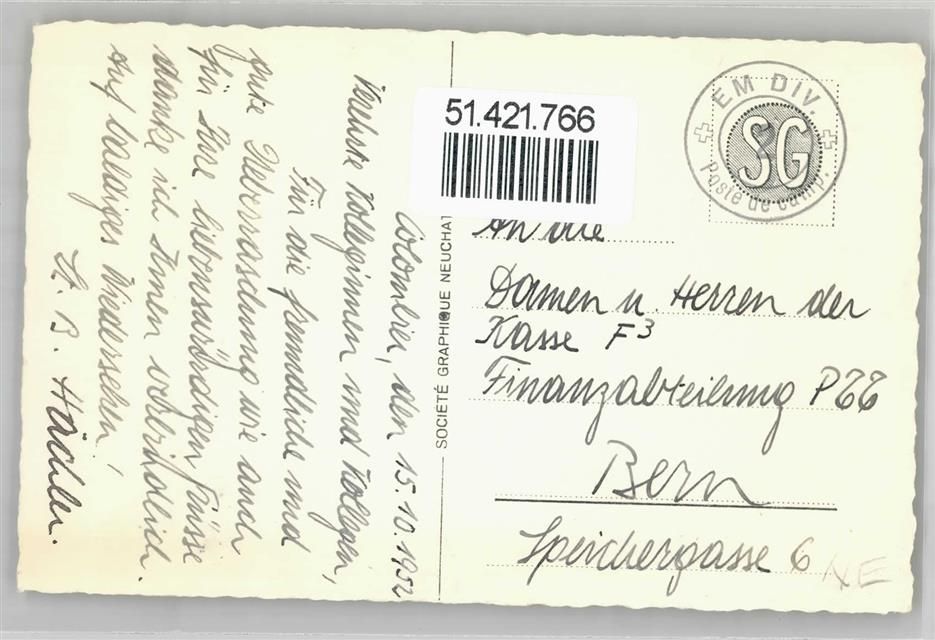 Colombier, den 15.10.1952
Verehrte Kolleginnen und Kollegen,
Für die freundliche und
gute Überraschung wie auch
für Ihre liebenswürdigen Grüsse
danke ich Ihnen recht herzlich.
Auf baldiges Wiedersehen!
H. B. Hächler.
51.421.766
SOCIETÉ GRAPHIQUE NEUCHAT
EM DIV.
SG
Poste de camp.
An die
Damen u. Herren der
Kasse F3
Finanzabteilung PTT
Bern
Speichergasse 6
NE